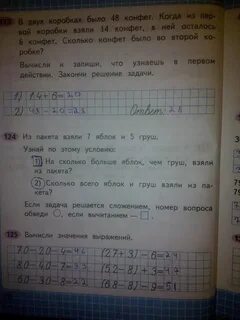 В двух коробках было 48 конфет. Когда из пер-
вой коробки взяли 14 конфет, в ней осталось
6 конфет. Сколько конфет было во второй ко-
робке?
Вычисли и запиши, что узнаешь в первом
действии. Закончи решение задачи.
1) 14+6=20
2) 48-20=28 Ответ: 28
124 Из пакета взяли 7 яблок и 5 груш.
Узнай по этому условию:
1) На сколько больше яблок, чем груш, взяли
из пакета?
2) Сколько всего яблок и груш взяли из па-
кета?
Если задача решается сложением, номер вопроса
обведи ○, если вычитанием — □.
125 Вычисли значения выражений.
70-20-4= (27+3)-6=24
80-40-7=33 (52-8)+3=47
60-30-8=22 (68-8)-9=51